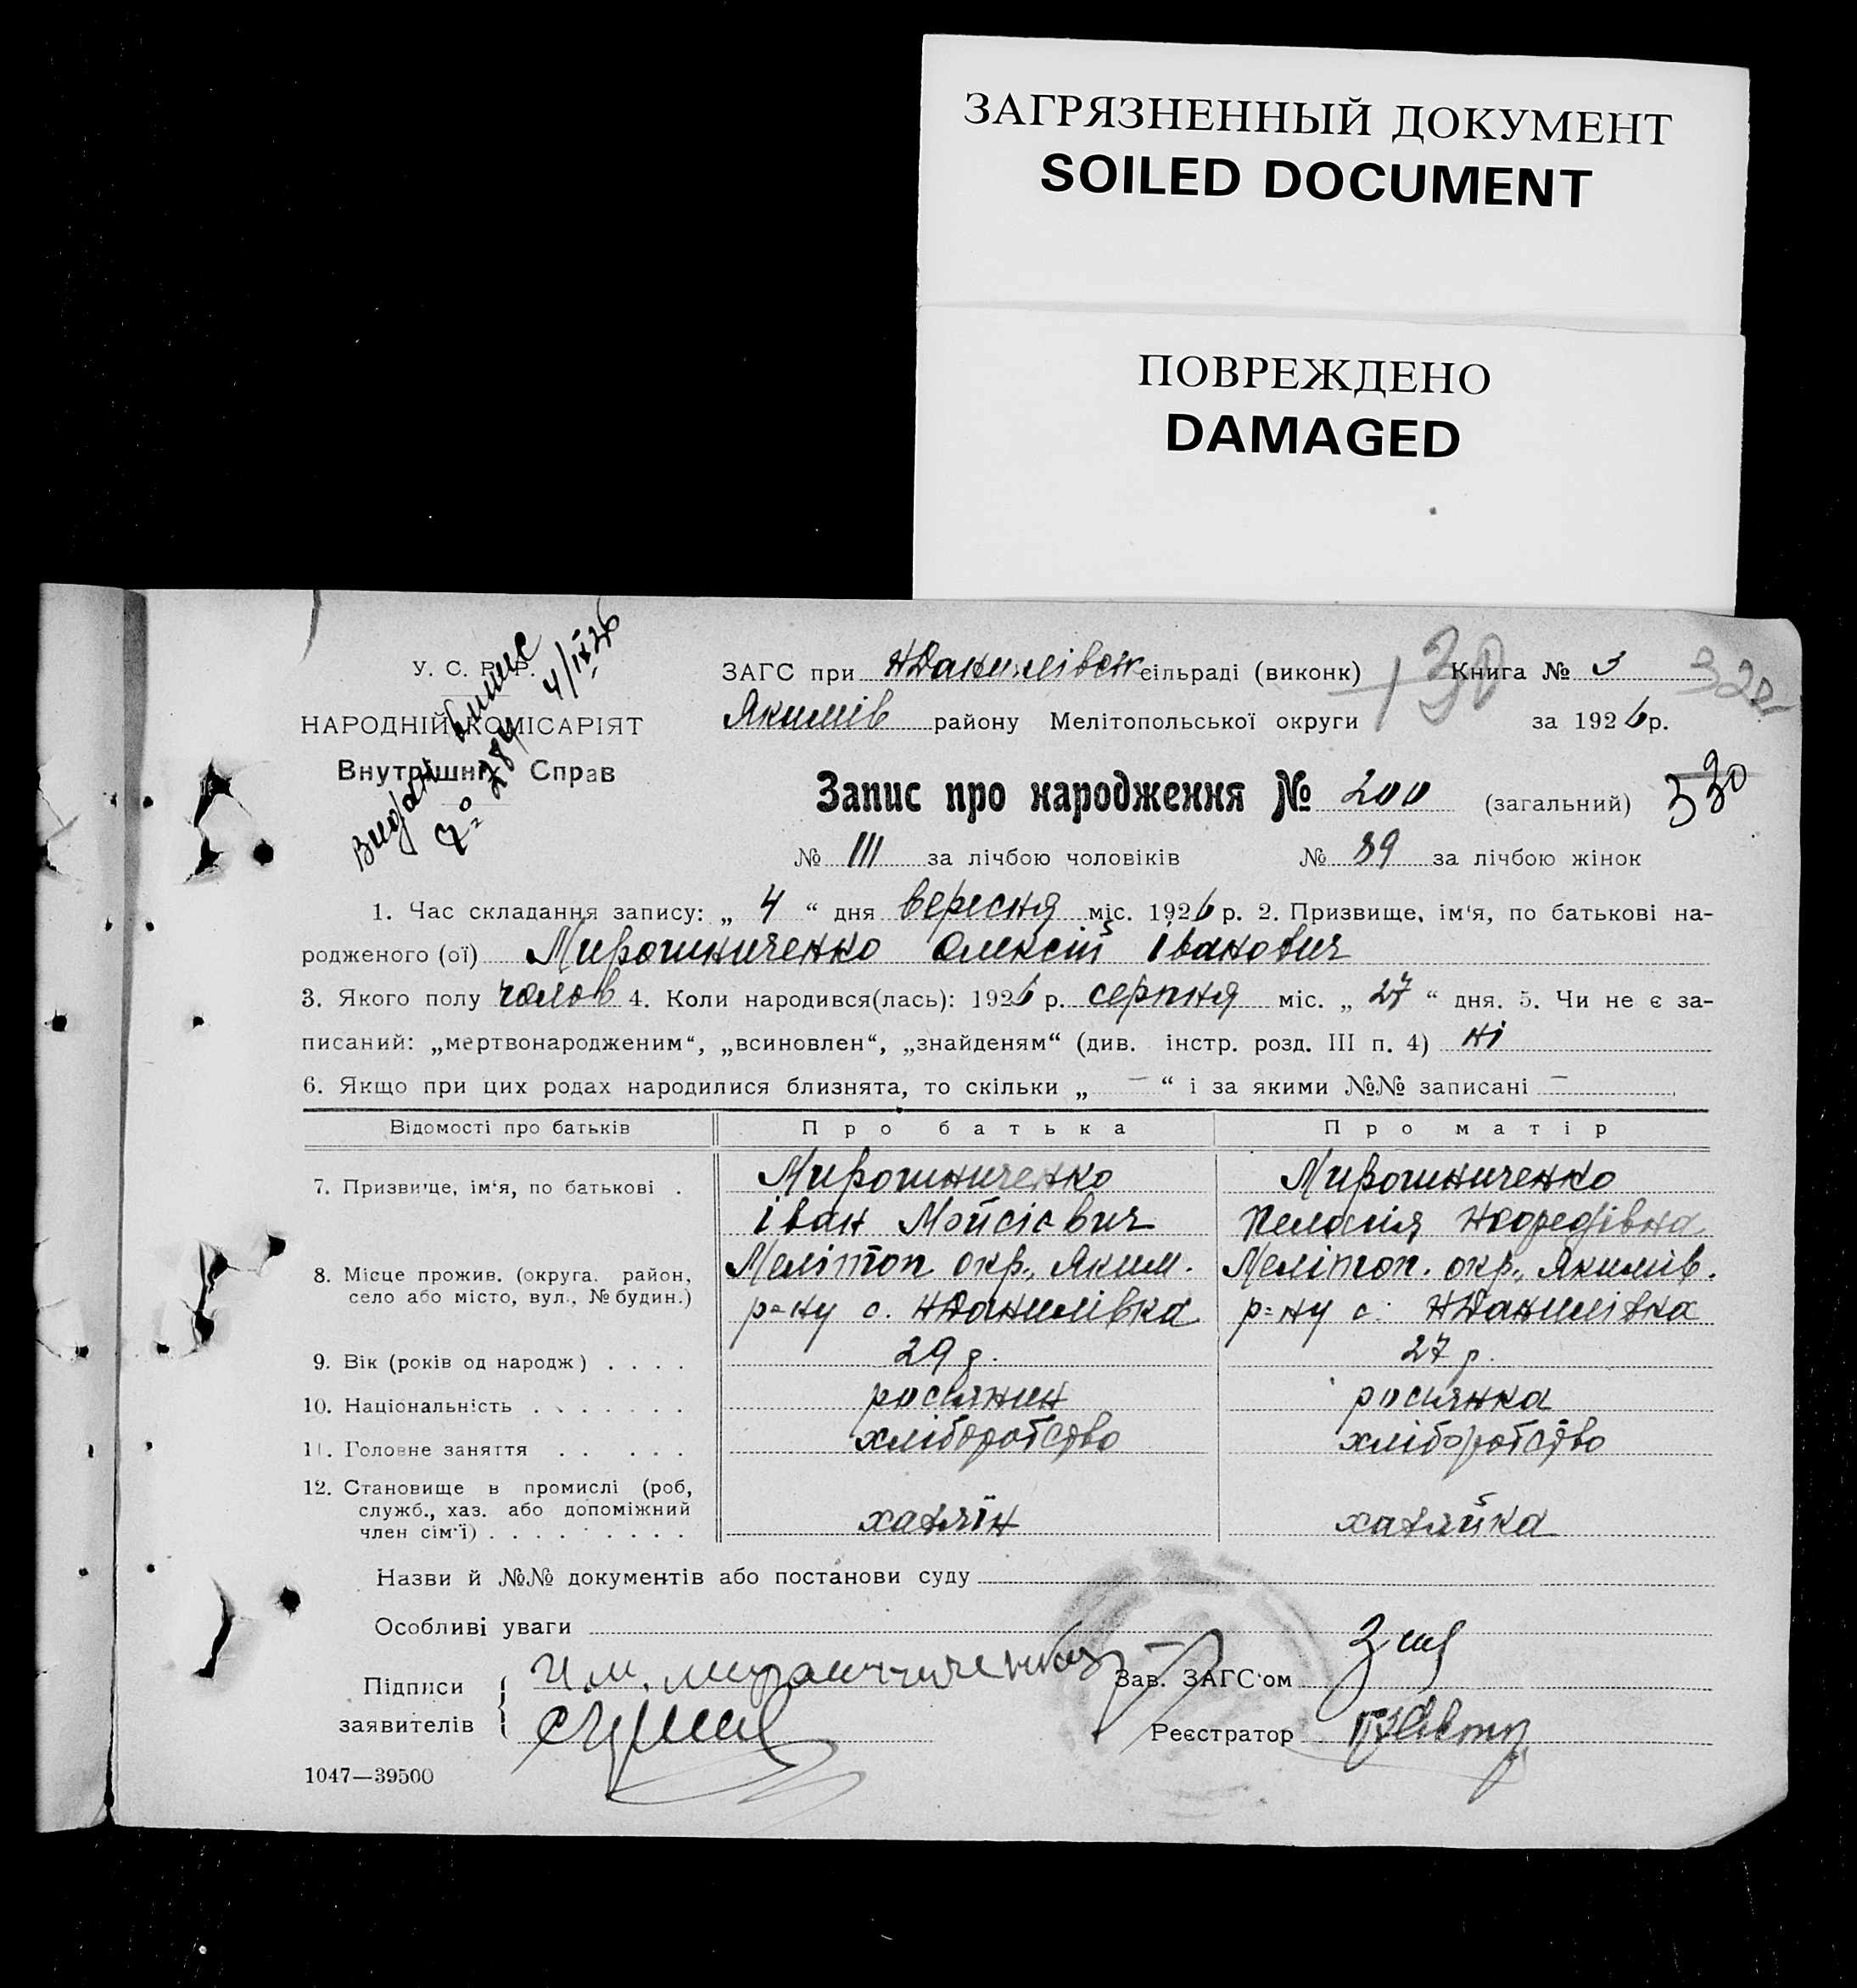 ЗАГРЯЗНЕННЫЙ ДОКУМЕНТ
SOILED DOCUMENT
ПОВРЕЖДЕНО
DAMAGED
Видан випис
№ 284 4/IX 26
У. С. Р. Р.
НАРОДНІЙ КОМІСАРІЯТ
Внутрішніх Справ
ЗАГС при НДанилівск сільраді (виконк) 130 Книга № 3 322
Якимів району Мелітопольської округи за 1926 р.
Запис про народження № 200 (загальний) 330
№ 111 за лічбою чоловіків № 89 за лічбою жінок
1. Час складання запису: „ 4 “ дня вересня міс. 1926 р. 2. Призвище, ім‘я, по батькові на-
родженого (ої) Мирошниченко Олексій Іванович
3. Якого полу чолов 4. Коли народився(лась): 1926 р. серпня міс. „ 27 “ дня. 5. Чи не є за-
писаний: „мертвонародженим“, „всиновлен“, „знайденям“ (див. інстр. розд. III п. 4) ні
6. Якщо при цих родах народилися близнята, то скільки „ — “ і за якими №№ записані —
Відомості про батьків Про батька Про матір
7. Призвище, ім‘я, по батькові . Мирошниченко Мирошниченко
Іван Мойсієвич Пелагія
8. Місце прожив. (округа. район, Мелітоп. окр., Яким. Мелітоп. окр., Якимів.
село або місто, вул., № будин.) р=ну с. НДанилівка р=ну с. НДанилівка
9. Вік (років од народж) . . . . 29 р. 27 р.
10. Національність . . . . . . . росіянин росіянка
11. Головне заняття . . . . . . хліборобство хліборобство
12. Становище в промислі (роб,
служб., хаз. або допоміжний
член сім‘ї) . . . . . . . . . . хазяїн хазяйка
Назви й №№ документів або постанови суду
Особливі уваги
Підписи И.м. Зав. ЗАГС‘ом
заявителів Реєстратор
1047—39500